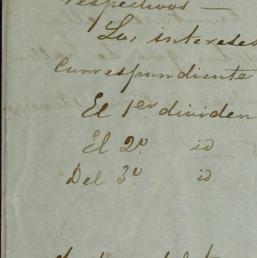 respectivos —
Los intereses
Correspondiente
El 1er dividen
El 2º id
Del 3º id